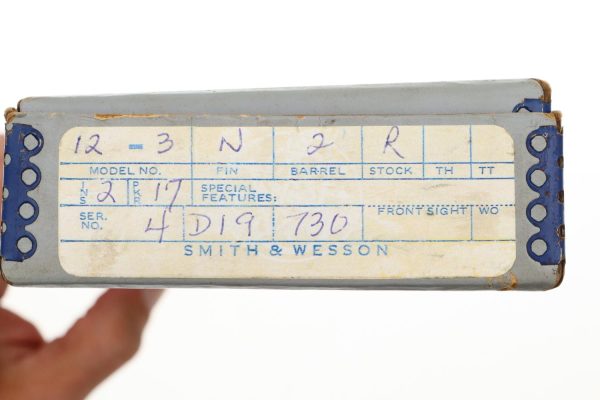 12 - 3 N 2 R
MODEL NO. FIN BARREL STOCK TH TT
INS 2 PKR 17 SPECIAL FEATURES:
SER. NO. 4 D19 730 FRONT SIGHT WO
SMITH & WESSON